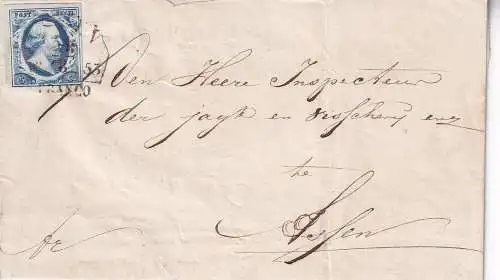 POST ZEGEL
53
FRANCO
Den Heere Inspecteur
der jagt en visscherij enz
te
Assen